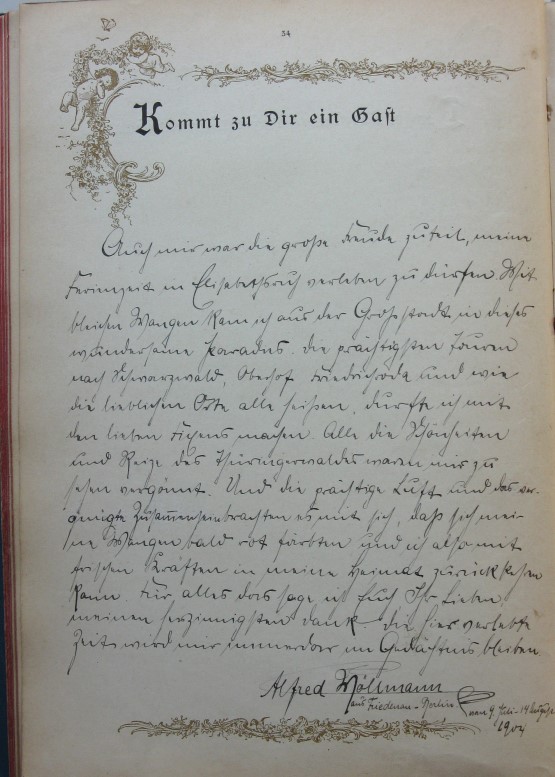 34
Kommt zu Dir ein Gast
Auch mir war die große Freude zuteil, meine
Ferienzeit in Elisabethsruh verleben zu dürfen. Mit
bleichen Wangen kam ich aus der Großstadt in dieses
wundersame Paradies. Die prächtigsten Touren
nach Schwarzwald, Oberhof, Friedrichroda und wie
die lieblichen Orte alle heißen, durfte ich mit
den lieben machen. Alle die Schönheiten
und Reize des Thüringerwaldes waren mir zu
sehen vergönnt. Und die prächtige Luft und das ver-
gnügte Zusammensein brachten es mit sich, daß sich mei-
ne Wangen bald rot färbten und ich also mit
frischen Kräften in meine Heimat zurückkehren
kann. Für alles das sage ich Euch Ihr Lieben
meinen herzinnigsten Dank. Die hier verlebte
Zeit wird mir immerdar im Gedächtnis bleiben.
Alfred Wöllmann
aus Friedenau-Berlin
vom 9 Juli - 14 August
1904